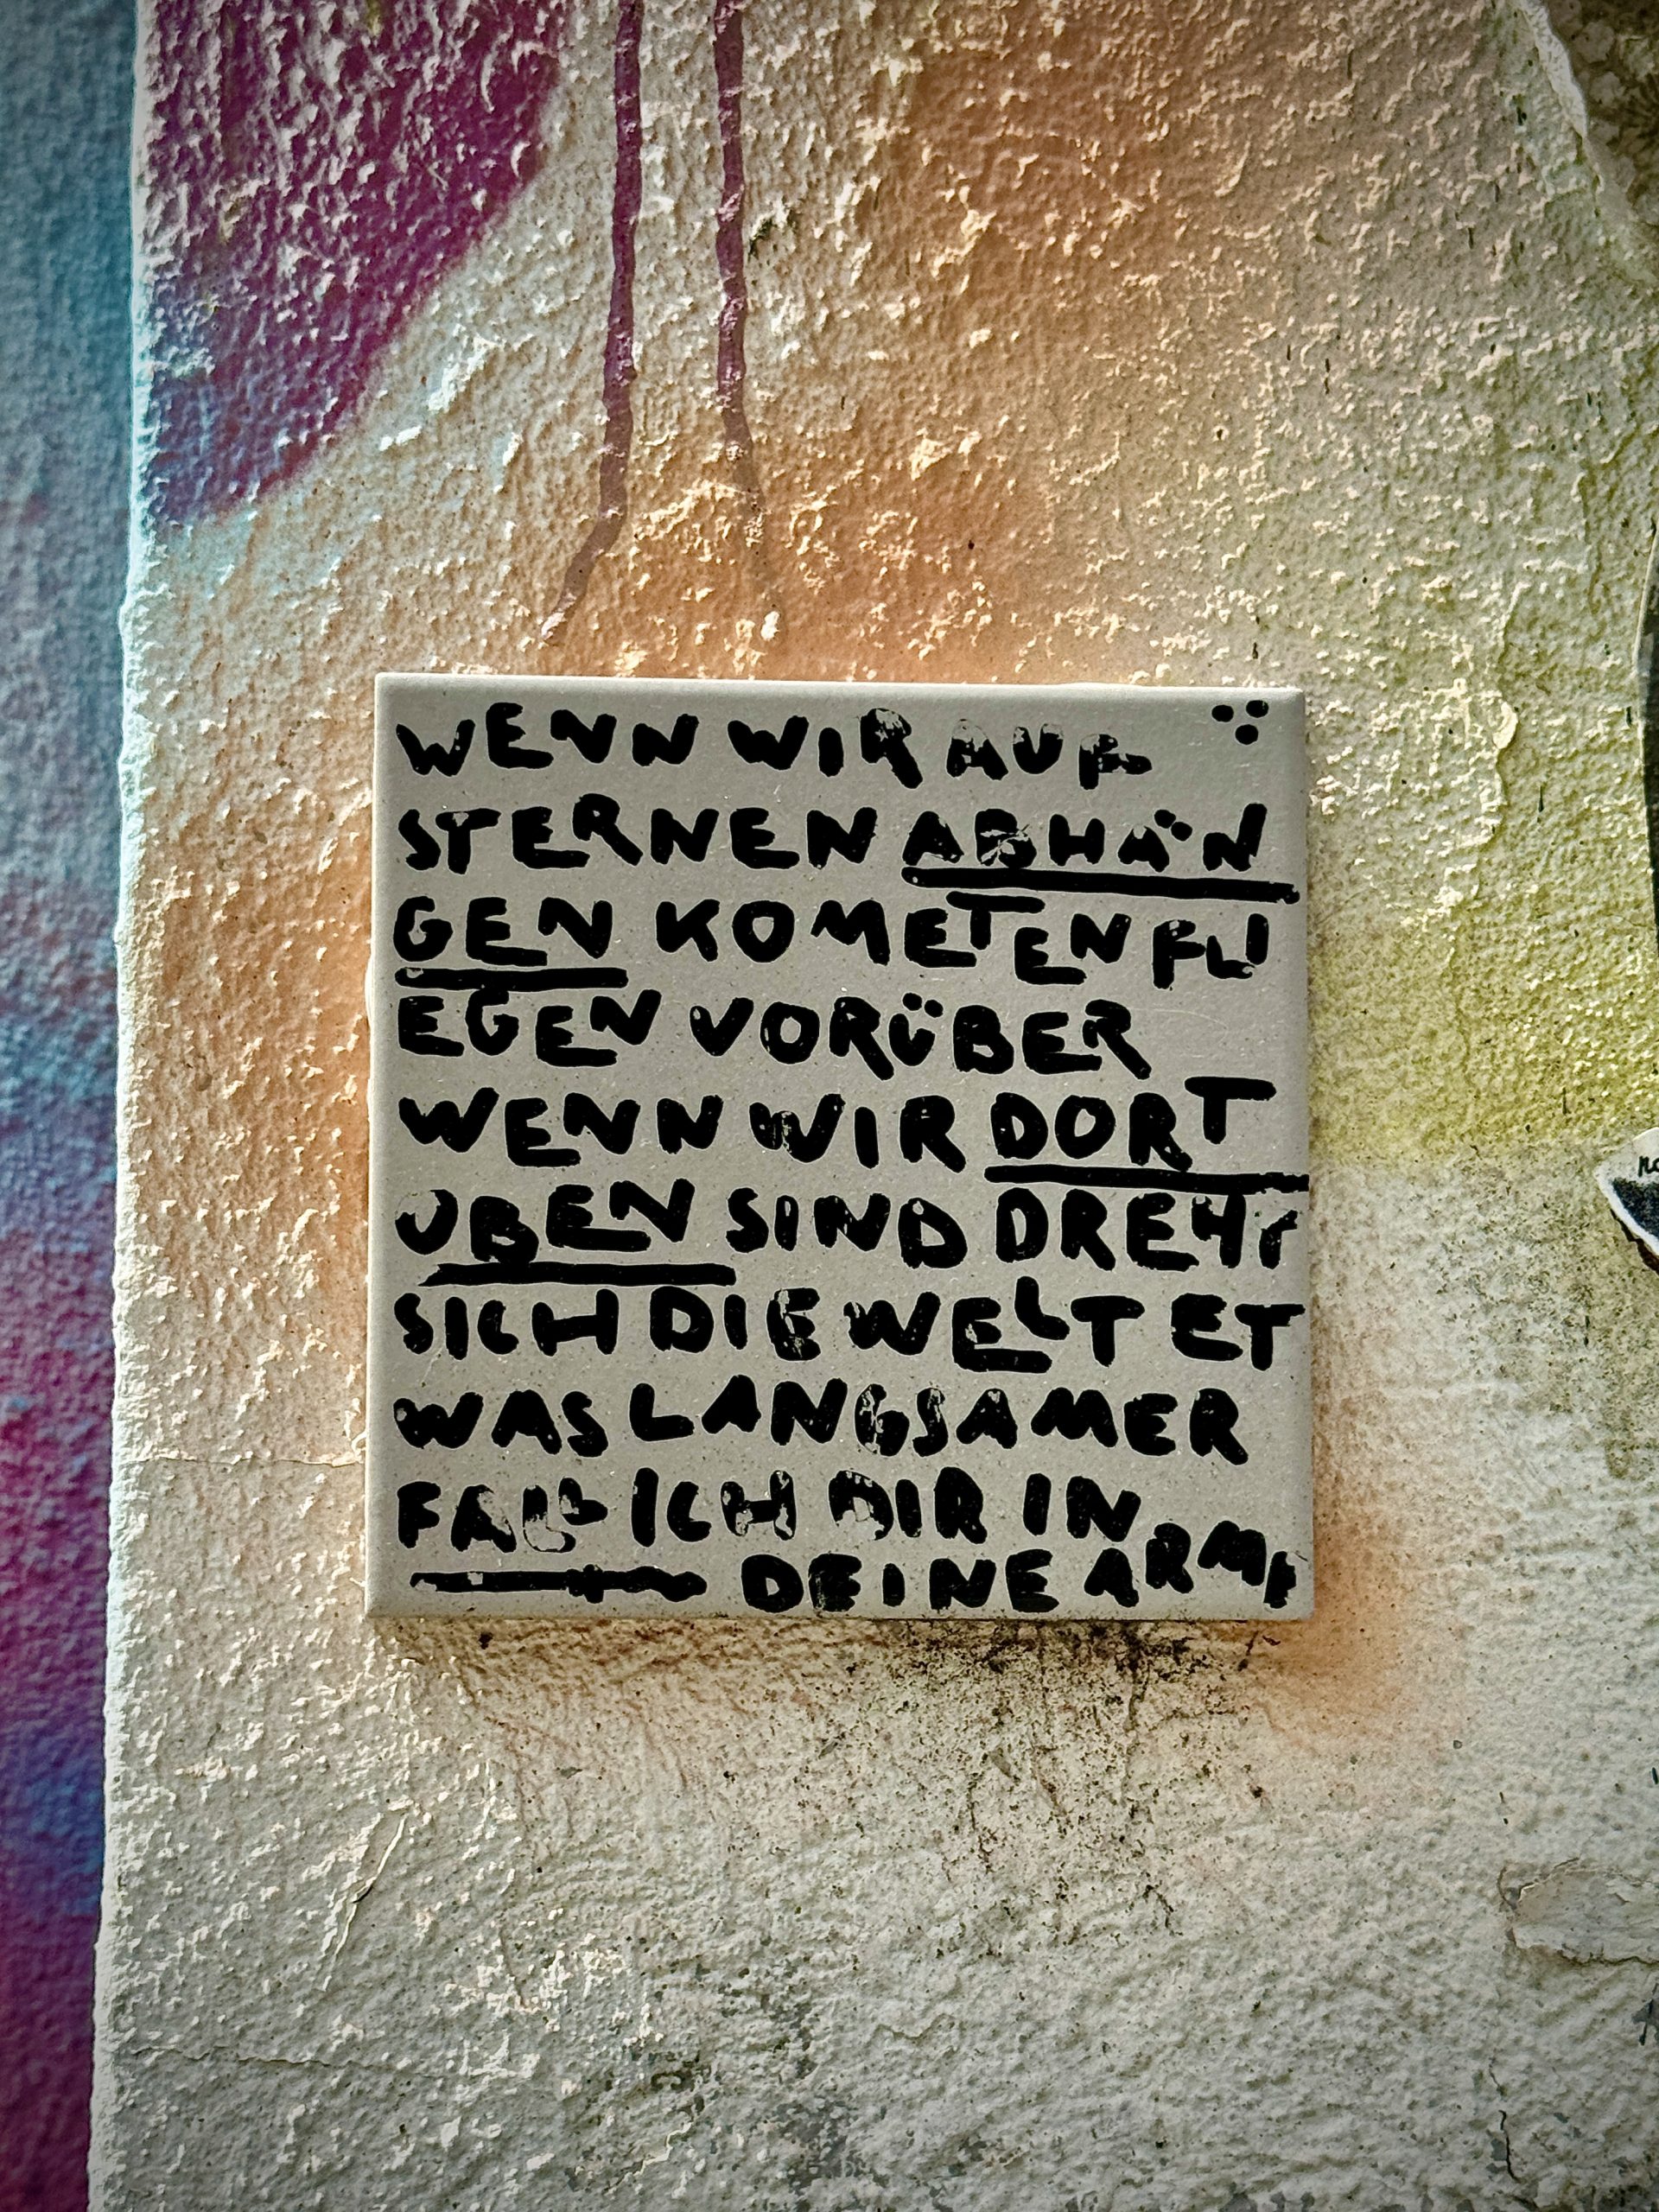 WENN WIR AUF
STERNEN ABHÄN
GEN KOMETEN FLI
EGEN VORÜBER
WENN WIR DORT
OBEN SIND DREHT
SICH DIE WELT ET
WAS LANGSAMER
FALL ICH DIR IN
DEINE ARME